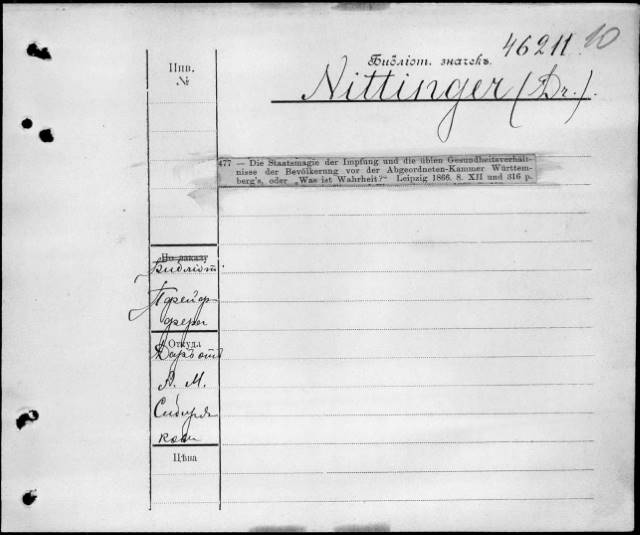 46211 10
Библіот. значекъ
Инв.
№
Nittinger (Dr.).
477 — Die Staatsmagie der Impfung und die üblen Gesundheitsverhält-
nisse der Bevölkerung vor der Abgeordneten-Kammer Württem-
berg's, oder „Was ist Wahrheit?“ Leipzig 1866. 8. XII und 316 p.
По заказу
Библіот.
Пфейф-
фера
Откуда
Даръ отъ
А. М.
Сибиря-
кова
Цѣна